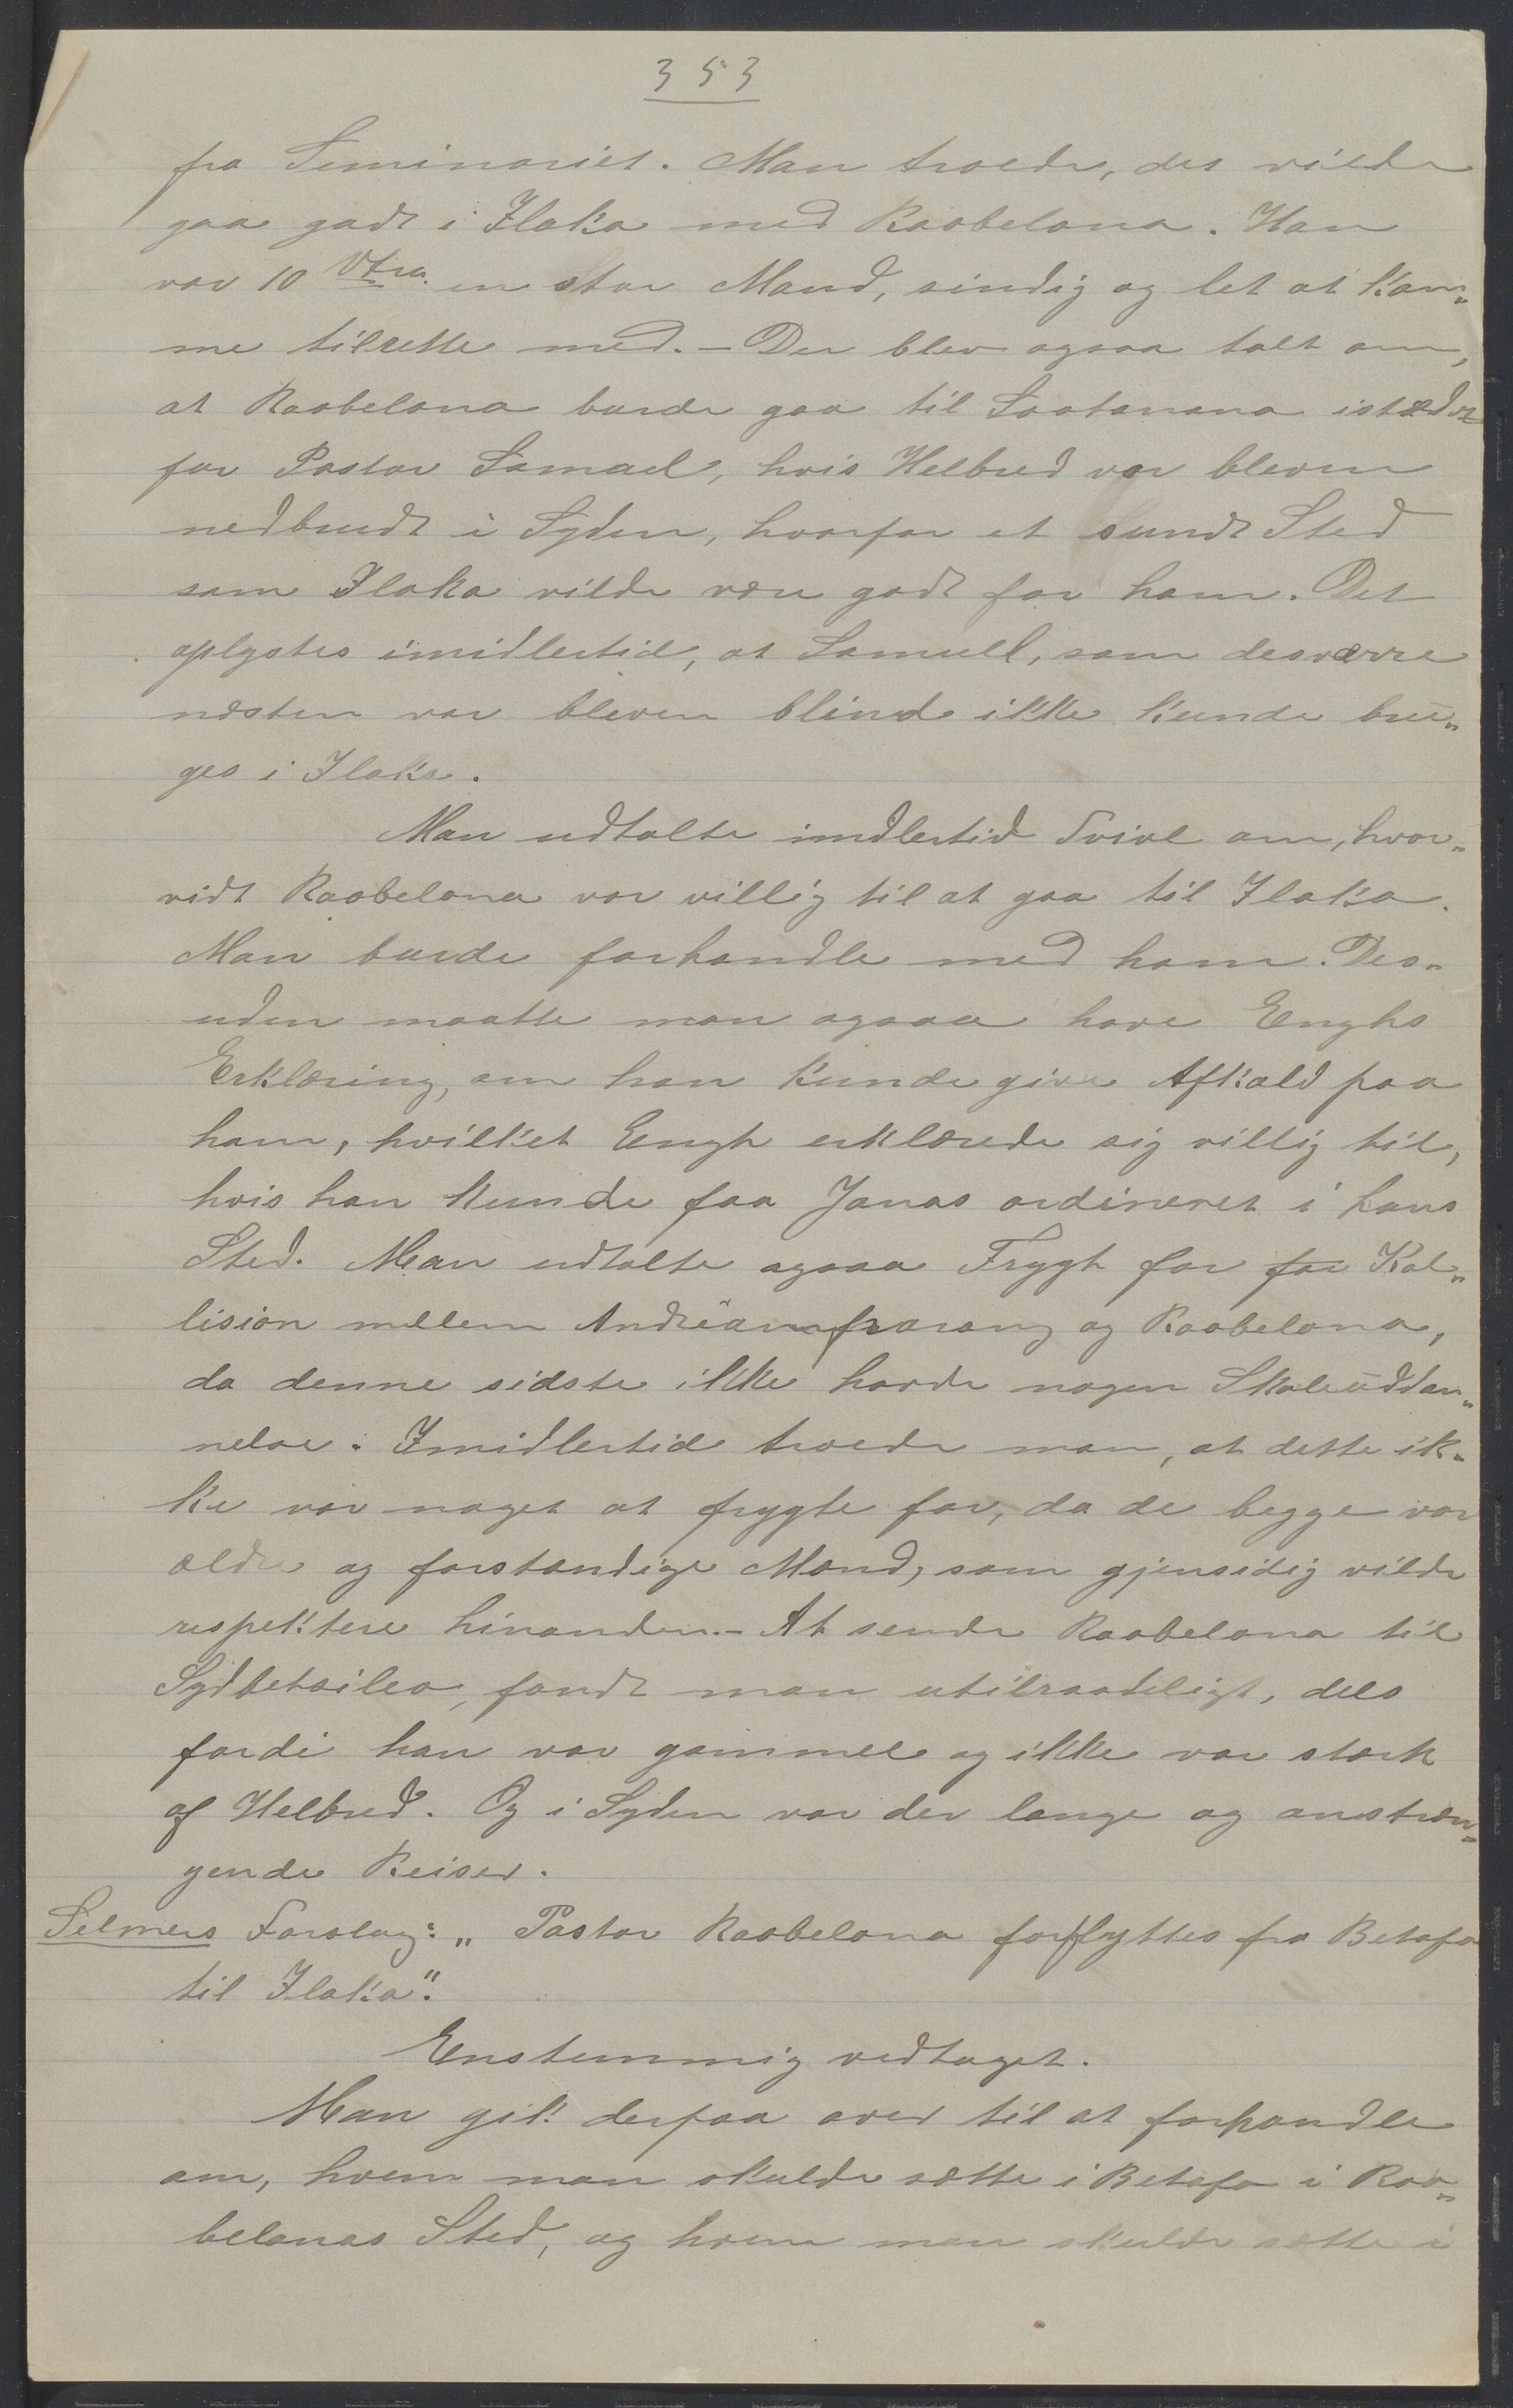 353
fra Seminariet. Man troede, det vilde
gaa godt i Ilaka med Raobelona. Han
var 10 Vtra. en stor Mand, sindig og let at kom„
me tilrette med. – Der blev ogsaa talt om,
at Raobelona burde gaa til Soatanana istedet
for Pastor Samuel, hvis Helbred var bleven
nedbrudt i Syden, hvorfor et sundt Sted
som Ilaka vilde være godt for ham. Det
oplystes imidlertid, at Samuel, som desværre
næsten var bleven blind ikke kunde bru„
ges i Ilaka.
Man udtalte imdlertid Tvivl om, hvor„
vidt Raobelona var villig til at gaa til Ilaka.
Man burde forhandle med ham. Des„
uden maatte man ogsaa have Enghs
Erklæring, om han kunde give Afkald paa
ham, hvilket Engh erklærede sig villig til,
hvis han kunde faa Jonas ordineret i hans
Sted. Man udtalte ogsaa Frygt for for Kol„
lision mellem og Raobelona,
da denne sidste ikke havde nogen Skoleuddan„
nelse. Imidlertid troede man, at dette ik„
ke var noget at frygte for, da de begge var
ældre og forstandige Mænd, som gjensidig vilde
respektere hinanden. – At sende Raobelona til
Sydbetsileo, fandt man utilraadeligt, dels
fordi han var gammel og ikke var stærk
af Helbred. Og i Syden var der lange og anstræn„
gende Reiser.
Selmers Forslag: „Pastor Raobelona forflyttes fra Betafo
til Ilaka".
Enstemmig vedtaget.
Man gik derpaa over til at forhandle
om, hvem man skulde sætte i Betafo i Rao„
belonas Sted, og hvem man skulde sætte i